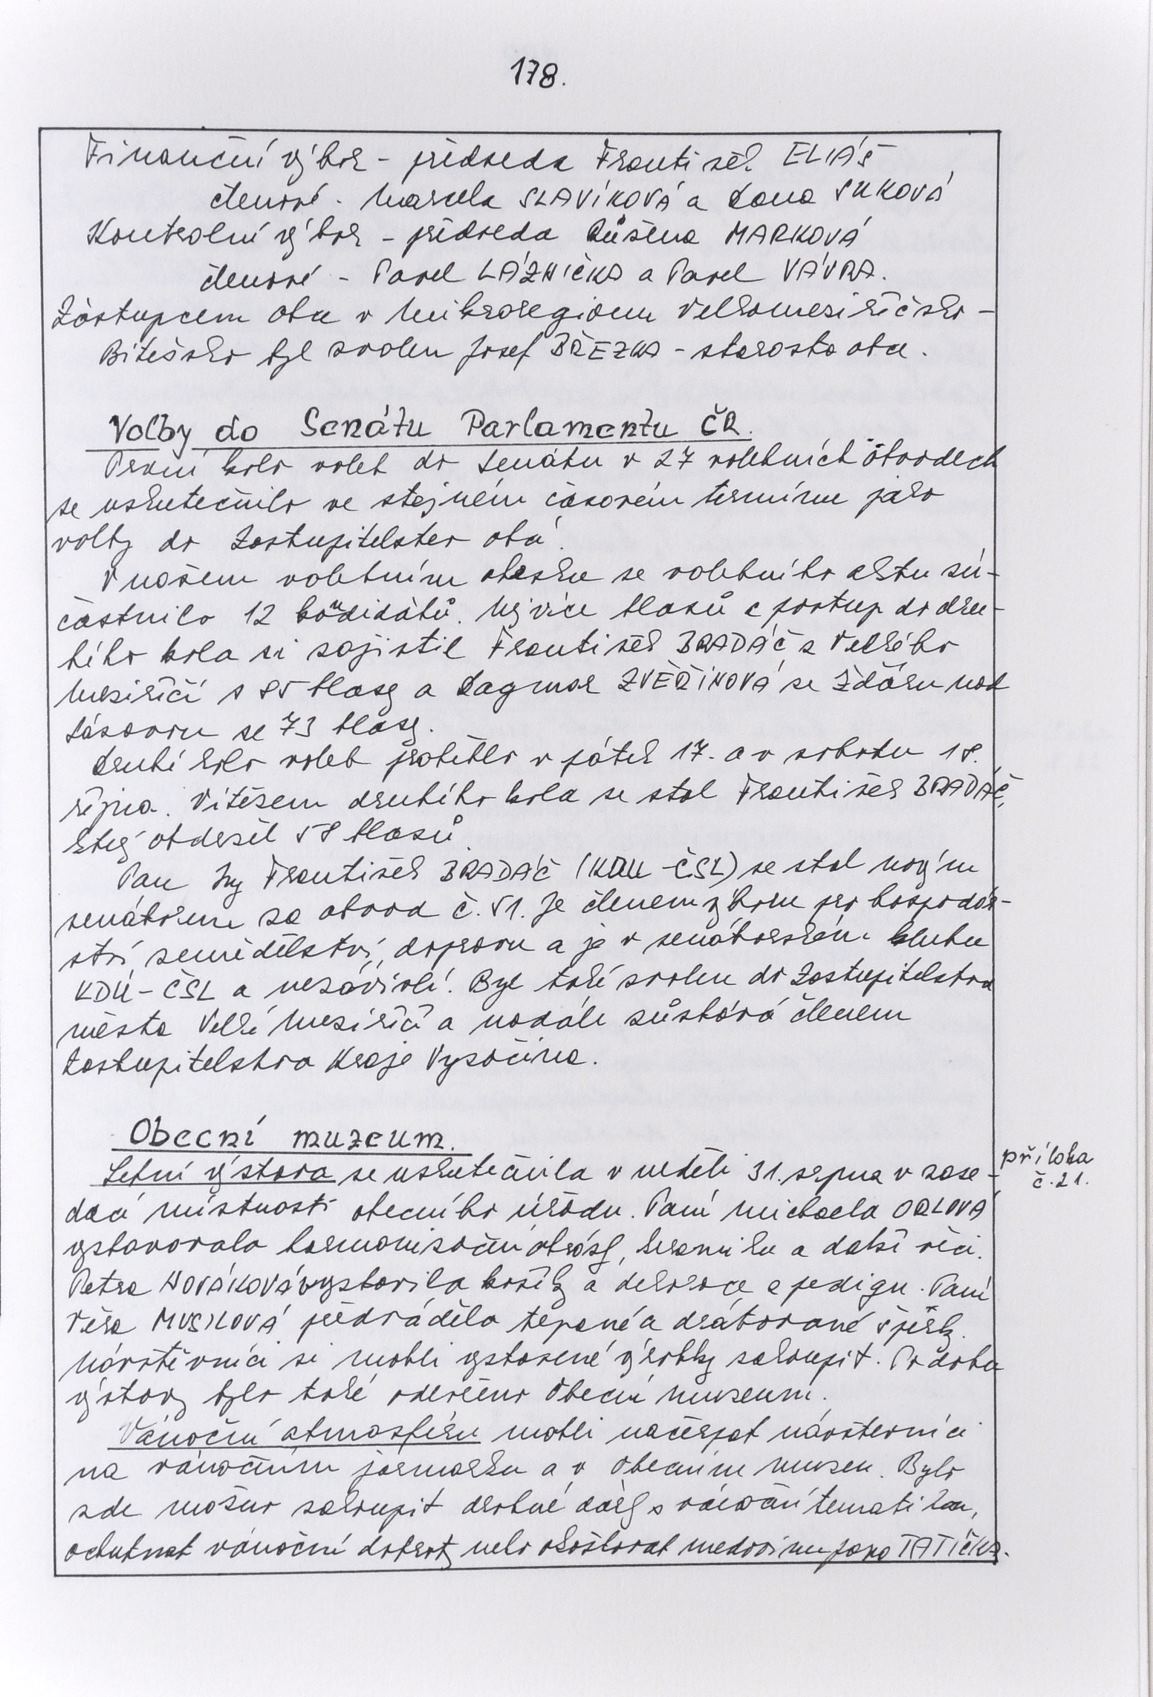 178.
Finanční výbor - předseda František ELIÁŠ
členové - Marcela SLAVÍKOVÁ a Dana SUKOVÁ
Kontrolní výbor - předseda Růžena MARKOVÁ
členové - Pavel LÁZNIČKA a Pavel VÁVRA.
Zástupcem obce v Mikroregionu Velkomeziříčsko -
Bítešsko byl zvolen Josef BŘEZKA - starosta obce.
Volby do Senátu Parlamentu ČR.
První kolo voleb do Senátu v 27 volebních obvodech
se uskutečnilo ve stejném časovém termínu jako
volby do Zastupitelstev obcí.
V našem volebním okrsku se volebního aktu zú-
častnilo 12 kandidátů. Nejvíce hlasů a postup do dru-
hého kola si zajistil František BRADÁČ z Velkého
Meziříčí s 85 hlasy a Dagmar ZVĚŘINOVÁ ze Žďáru nad
Sázavou se 73 hlasy.
Druhé kolo voleb proběhlo v pátek 17. a v sobotu 18.
října. Vítězem druhého kola se stal František BRADÁČ,
který obdržel 58 hlasů.
Pan Ing František BRADÁČ (KDU-ČSL) se stal novým
senátorem za obvod č. 51. Je členem výboru pro hospodář-
ství zemědělství, dopravu a je v senátorském klubu
KDU-ČSL a nezávislí. Byl také zvolen do Zastupitelstva
města Velké Meziříčí a nadále zůstává členem
Zastupitelstva Kraje Vysočina.
Obecní muzeum.
Letní výstava se uskutečnila v neděli 31. srpna v zase-
dací místnosti obecního úřadu. Paní Michaela ORLOVÁ
vystavovala harmonizační obrázky, keramiku a další věci.
Petra NOVÁKOVÁ vystavila košíky a dekorace z pedigu. Paní
Věra MUSILOVÁ předváděla tepané a drátované šperky.
Návštěvníci si mohli vystavené výrobky zakoupit. Po dobu
výstavy bylo také otevřeno Obecní muzeum.
Vánoční atmosféru mohli načerpat návštěvníci
na vánočním jarmarku a v Obecním muzeu. Bylo
zde možno zakoupit drobné dárky s vánoční tematikou,
ochutnat vánoční dobroty nebo okoštovat medovinu pana TATÍČKA.
příloha
č. 21.